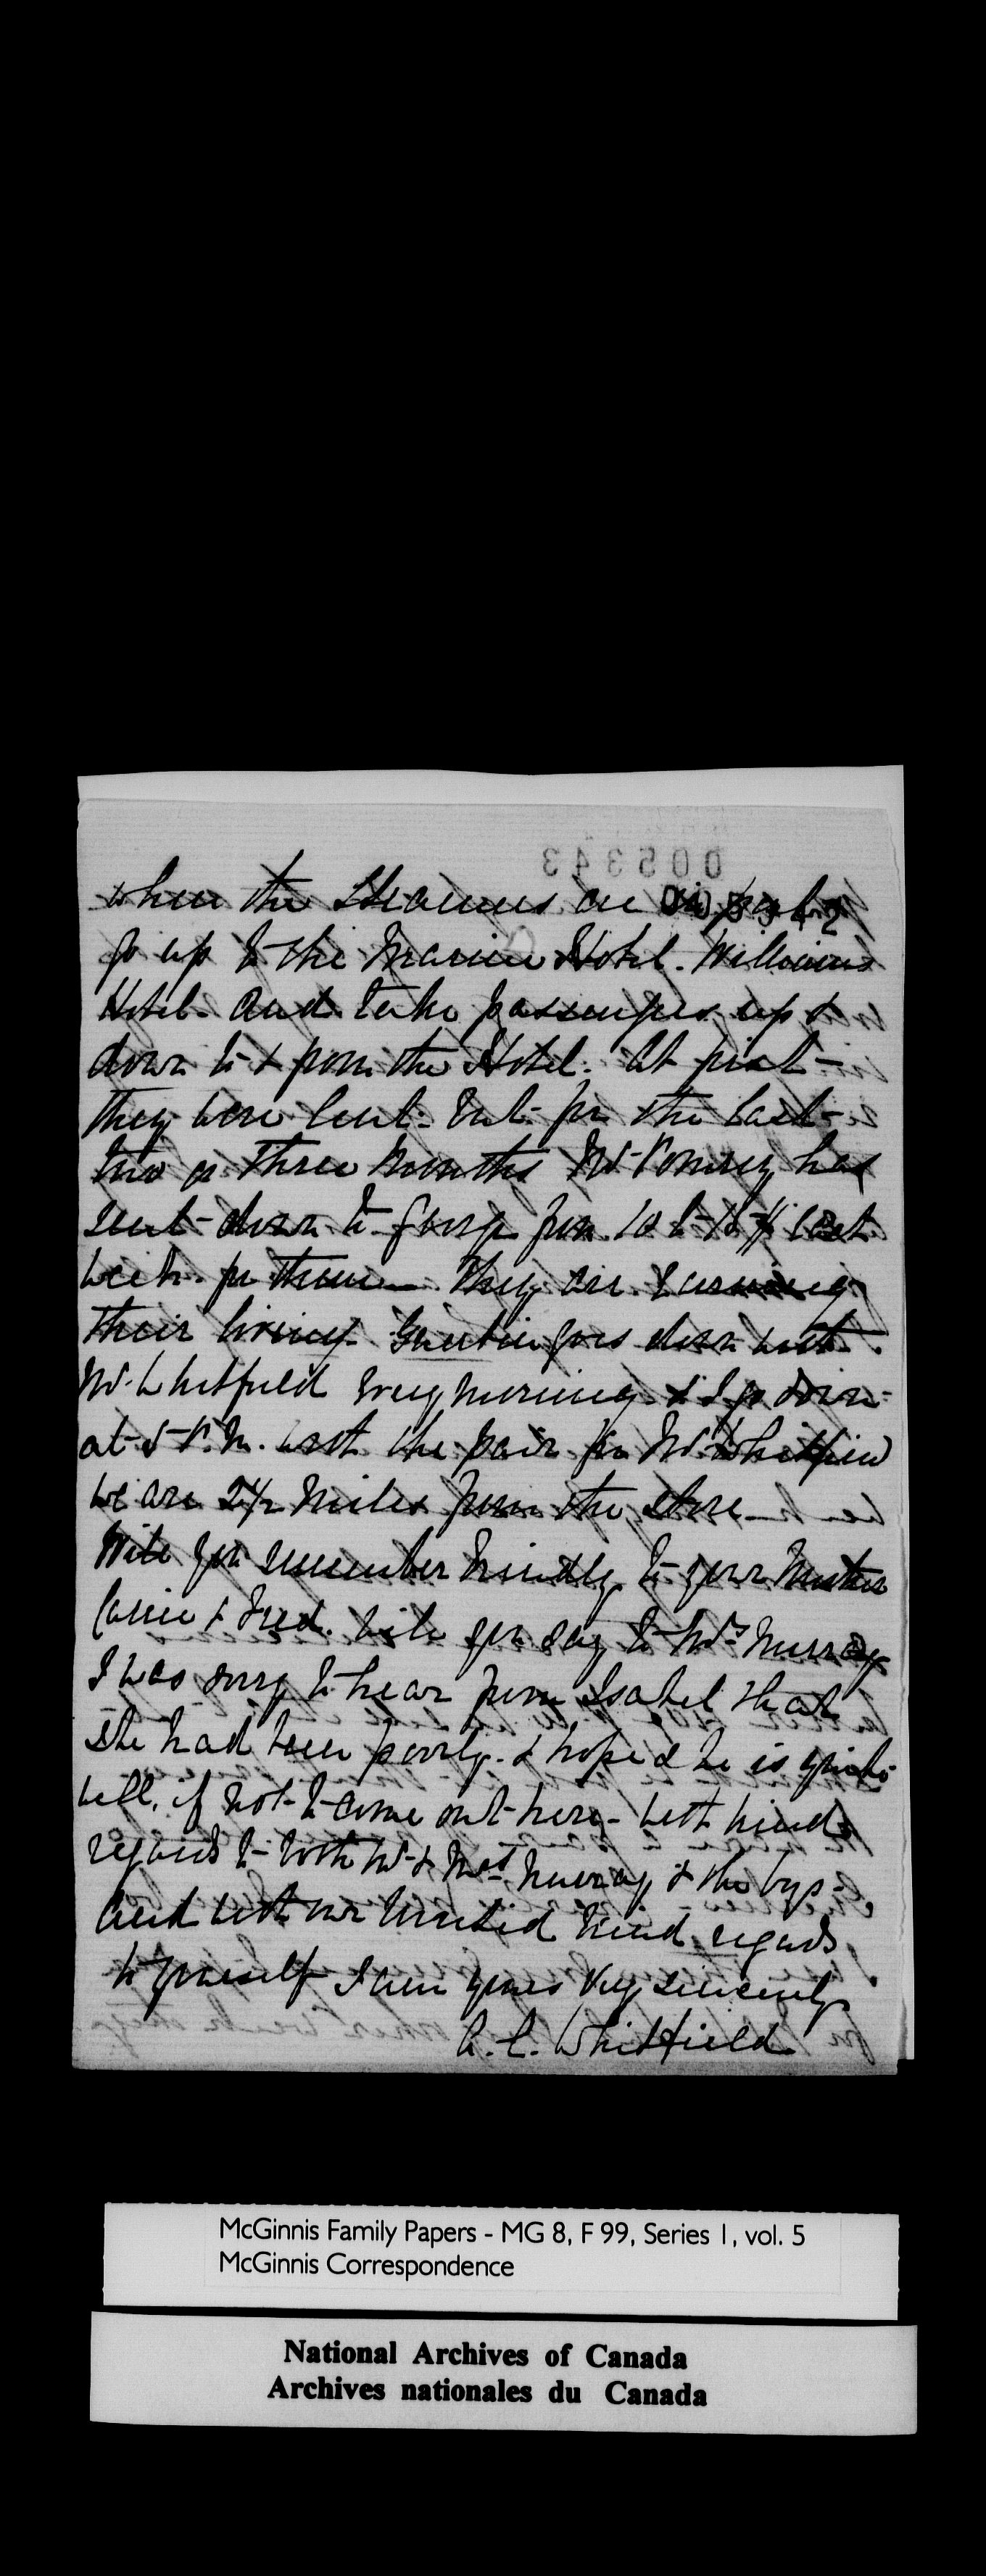 005343
when the Steamers are in port
005342
go up to the Marine Hotel. Williams
Hotel. and take passengers up &
down to & from the Hotel. At first
they were lent. but for the last
two or three months Mr Pomroy has
sent down to from 10 to 15 $ each
week for them. They are earning
their living. goes down with
Mr. Whitfield every morning & I go down
at 5 P.M. with the pair for Mr Whitfield
we are 2 1/2 miles from the store
Will you remember kindly to your Mother
& Fred. will you say to Mrs Murray
I was sorry to hear from Isabel that
she had been poorly. & hope she is quite
well, if not to come out here. With kind
regards to both Mr & Mrs Murray & the boys.
And with our united kind regards
to yourself I am yours very sincerely
A. L. Whitfield
McGinnis Family Papers - MG 8, F 99, Series 1, vol. 5
McGinnis Correspondence
National Archives of Canada
Archives nationales du Canada